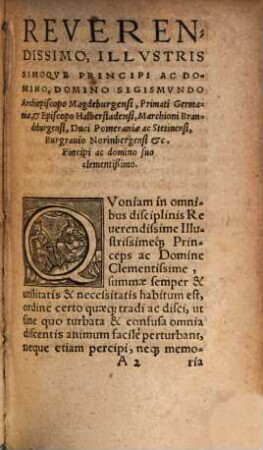 REVEREN-
DISSIMO, ILLVSTRIS
SIMOQVE PRINCIPI AC DO-
MINO, DOMINO SIGISMVNDO
Archiepiscopo Magdeburgensi, Primati Germa-
niæ, & Episcopo Halberstadensi, Marchioni Bran-
diburgensi, Duci Pomeraniæ ac Stetinensi,
Burgrauio Norinbergensi &c.
Pincipi ac domino suo
clementissimo.
QVoniam in omni
bus disciplinis Re
uerendissime Illu-
strissimeq́; Prin-
ceps ac Domine
Clementissime,
summæ semper &
utilitatis & necessitatis habitum est,
ordine certo quæq; tradi ac disci, ut
sine quo turbata & confusa omnia
discentis animum facile perturbant,
neque etiam percipi, neq; memo-
A 2 ria